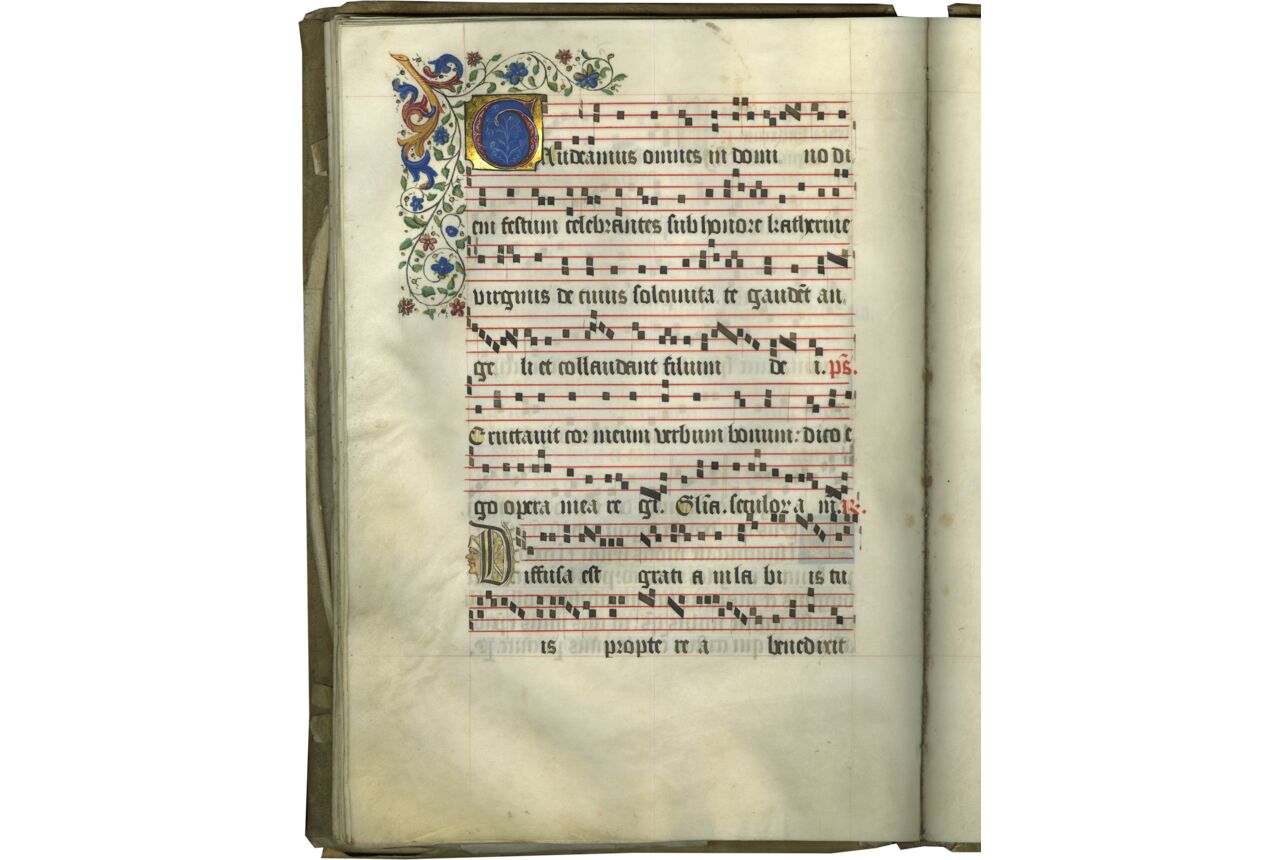 GAudeamus omnes in domi no di
em festum celebrantes sub honore katherine
virginis de cuius solennita te gaudēt an
ge li et collaudant filium de i. ps̄.
Eructauit cor meum verbum bonum: dico e
go opera mea re gi. Gl̄ia. seculor a m.
Diffusa est grati a in la bi is tu
is propte re a benedixit